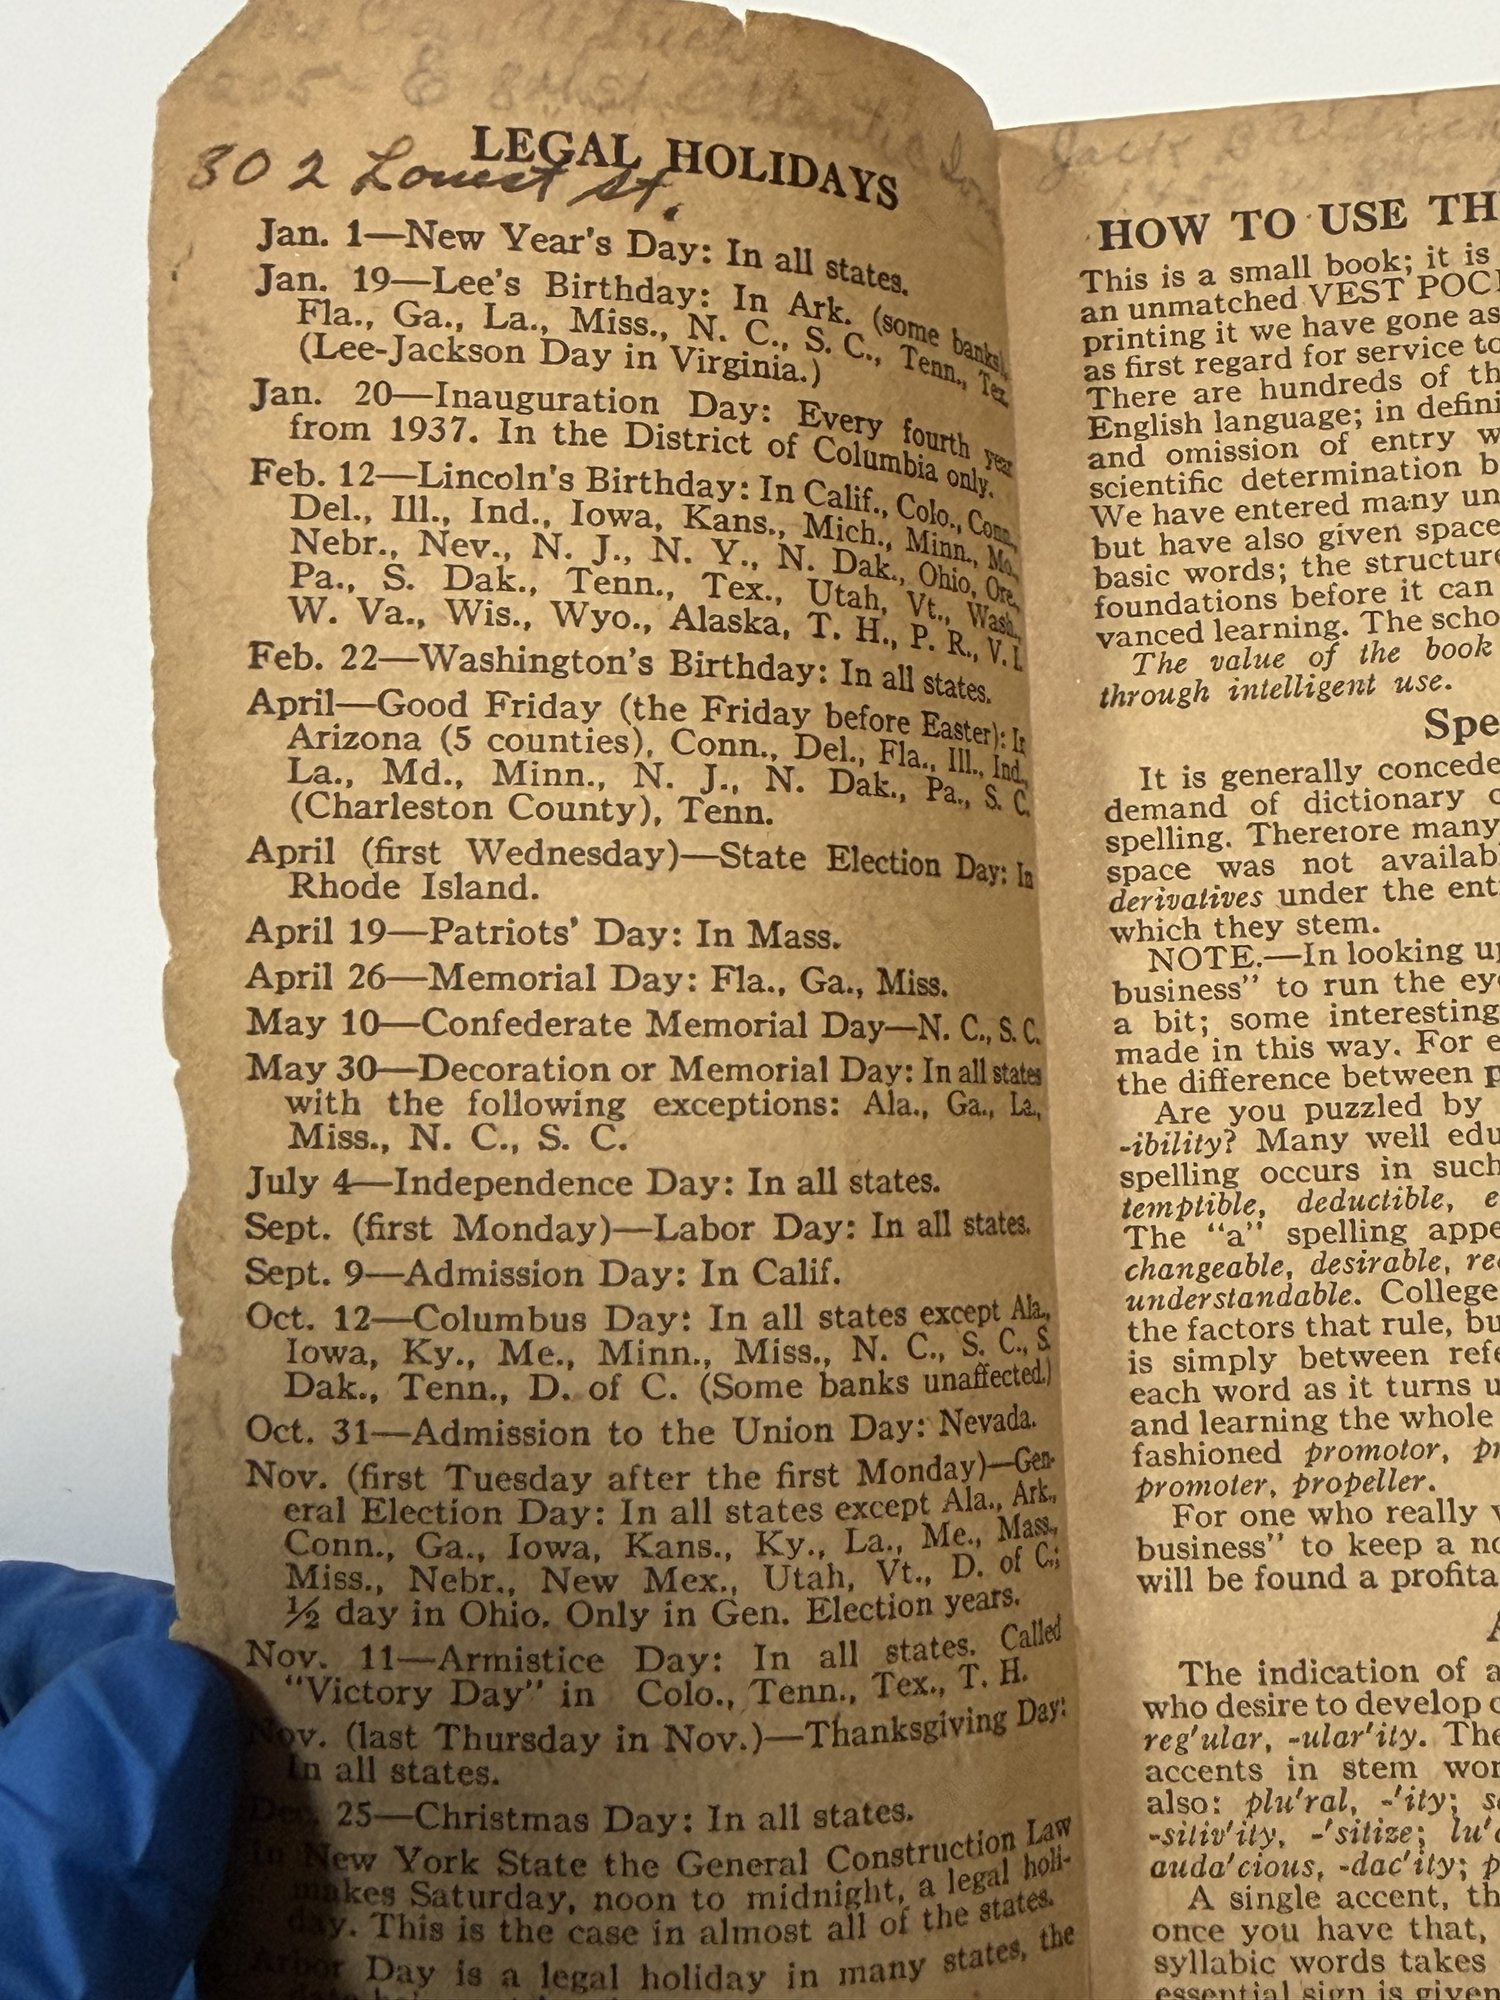 205 E 8th St. Atlantic
802 Locust St.
LEGAL HOLIDAYS
Jan. 1—New Year's Day: In all states.
Jan. 19—Lee's Birthday: In Ark. (some banks),
Fla., Ga., La., Miss., N. C., S. C., Tenn., Tex.
(Lee-Jackson Day in Virginia.)
Jan. 20—Inauguration Day: Every fourth year
from 1937. In the District of Columbia only.
Feb. 12—Lincoln's Birthday: In Calif., Colo., Conn.,
Del., Ill., Ind., Iowa, Kans., Mich., Minn., Mo.,
Nebr., Nev., N. J., N. Y., N. Dak., Ohio, Ore.,
Pa., S. Dak., Tenn., Tex., Utah, Vt., Wash.,
W. Va., Wis., Wyo., Alaska, T. H., P. R., V. I.
Feb. 22—Washington's Birthday: In all states.
April—Good Friday (the Friday before Easter): In
Arizona (5 counties), Conn., Del., Fla., Ill., Ind.,
La., Md., Minn., N. J., N. Dak., Pa., S. C.
(Charleston County), Tenn.
April (first Wednesday)—State Election Day: In
Rhode Island.
April 19—Patriots' Day: In Mass.
April 26—Memorial Day: Fla., Ga., Miss.
May 10—Confederate Memorial Day—N. C., S. C.
May 30—Decoration or Memorial Day: In all states
with the following exceptions: Ala., Ga., La.,
Miss., N. C., S. C.
July 4—Independence Day: In all states.
Sept. (first Monday)—Labor Day: In all states.
Sept. 9—Admission Day: In Calif.
Oct. 12—Columbus Day: In all states except Ala.,
Iowa, Ky., Me., Minn., Miss., N. C., S. C., S.
Dak., Tenn., D. of C. (Some banks unaffected.)
Oct. 31—Admission to the Union Day: Nevada.
Nov. (first Tuesday after the first Monday)—Gen-
eral Election Day: In all states except Ala., Ark.,
Conn., Ga., Iowa, Kans., Ky., La., Me., Mass.,
Miss., Nebr., New Mex., Utah, Vt., D. of C.;
½ day in Ohio. Only in Gen. Election years.
Nov. 11—Armistice Day: In all states. Called
"Victory Day" in Colo., Tenn., Tex., T. H.
Nov. (last Thursday in Nov.)—Thanksgiving Day:
In all states.
Dec. 25—Christmas Day: In all states.
In New York State the General Construction Law
makes Saturday, noon to midnight, a legal holi-
y. This is the case in almost all of the states.
Day is a legal holiday in many states, the
Jack
HOW TO USE TH
This is a small book; it is
an unmatched VEST POC
printing it we have gone as
as first regard for service to
There are hundreds of th
English language; in defini
and omission of entry w
scientific determination b
We have entered many un
but have also given space
basic words; the structure
foundations before it can
vanced learning. The scho
The value of the book
through intelligent use.
Spe
It is generally concede
demand of dictionary c
spelling. Therefore many
space was not availab
derivatives under the ent
which they stem.
NOTE.—In looking up
business" to run the eye
a bit; some interesting
made in this way. For e
the difference between p
Are you puzzled by
-ibility? Many well edu
spelling occurs in such
temptible, deductible, e
The "a" spelling appe
changeable, desirable, rec
understandable. College
the factors that rule, bu
is simply between refe
each word as it turns u
and learning the whole
fashioned promotor, pr
promoter, propeller.
For one who really v
business" to keep a no
will be found a profita
A
The indication of a
who desire to develop c
reg'ular, -ular'ity. The
accents in stem wor
also: plu'ral, -'ity; s
-sitiv'ity, -'sitize; lu'c
auda'cious, -dac'ity; p
A single accent, th
once you have that,
syllabic words takes
essential sign is given